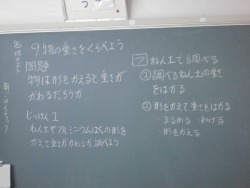 9 物の重さをくらべよう
問題
物は形をかえると重さが
かわるだろうか
じっけん1
ねん土やアルミニウムはくの形を
かえて重さがかわるか調べよう
ねん土で調べる
① 調べるねん土の重さ
をはかる
② 形をかえて重さをはかる
・まるめる ・わける
・形をかえる